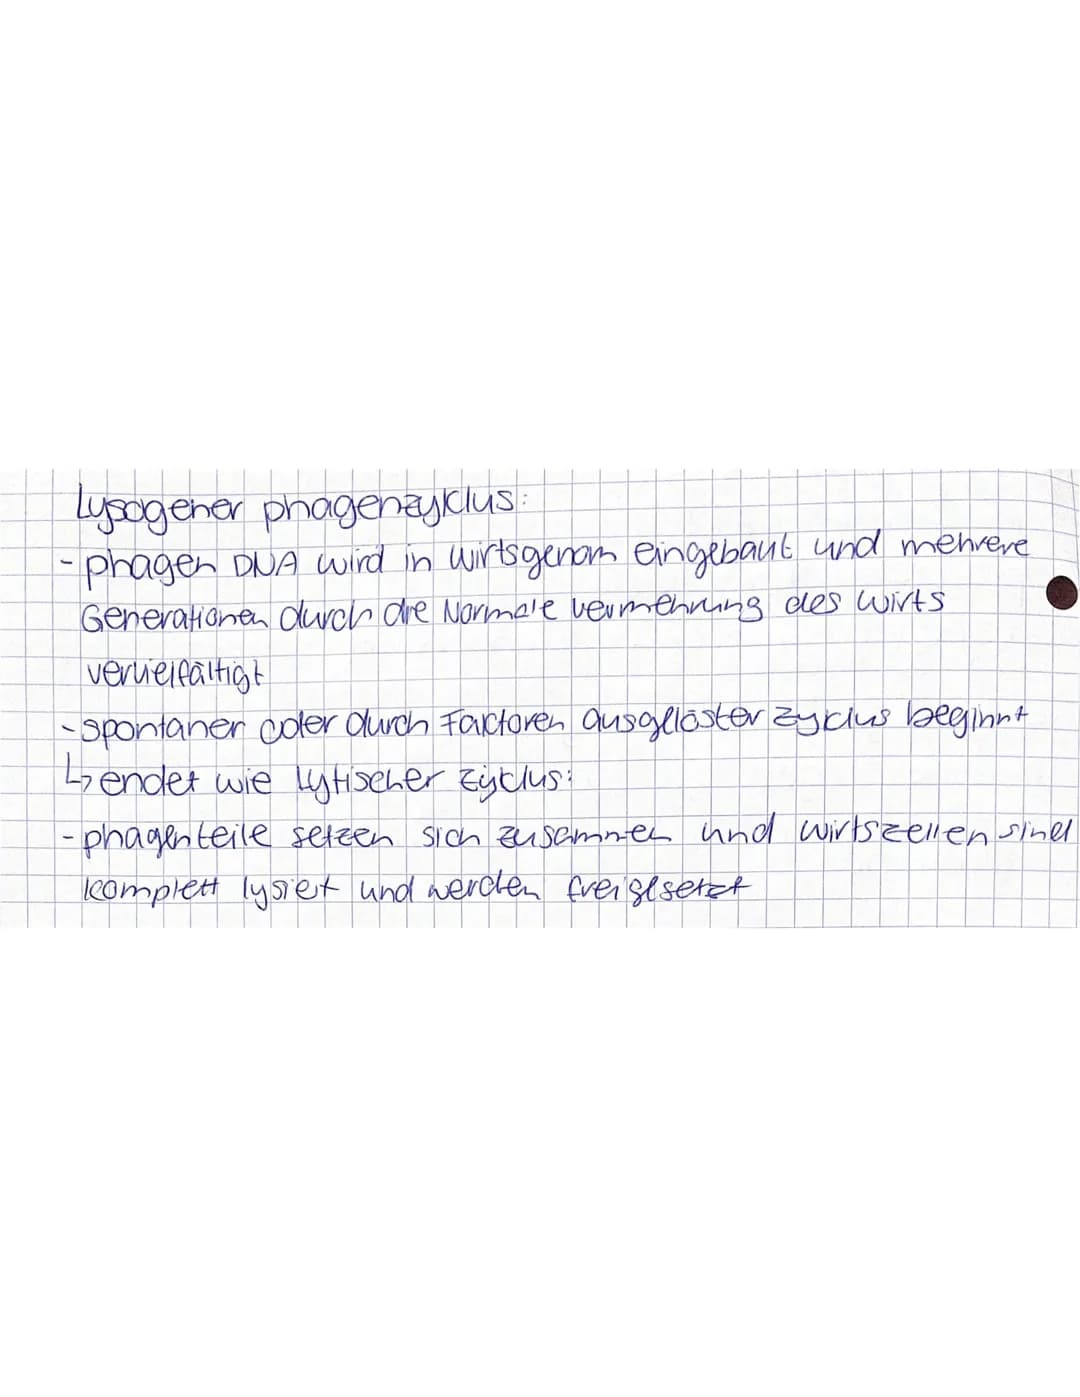 Lysogener phagenzyklus:
- phagen DNA wird in Wirtsgenom eingebaut und mehrere
Generationen durch die Normale vermehrung des Wirts
vervielfältigt
- spontaner oder durch Faktoren ausgelöster Zyklus beginnt
↳ endet wie Lytischer Zyklus:
- phagenteile setzen sich zusammen und wirtszellen sind
komplett lysiert und werden freigesetzt